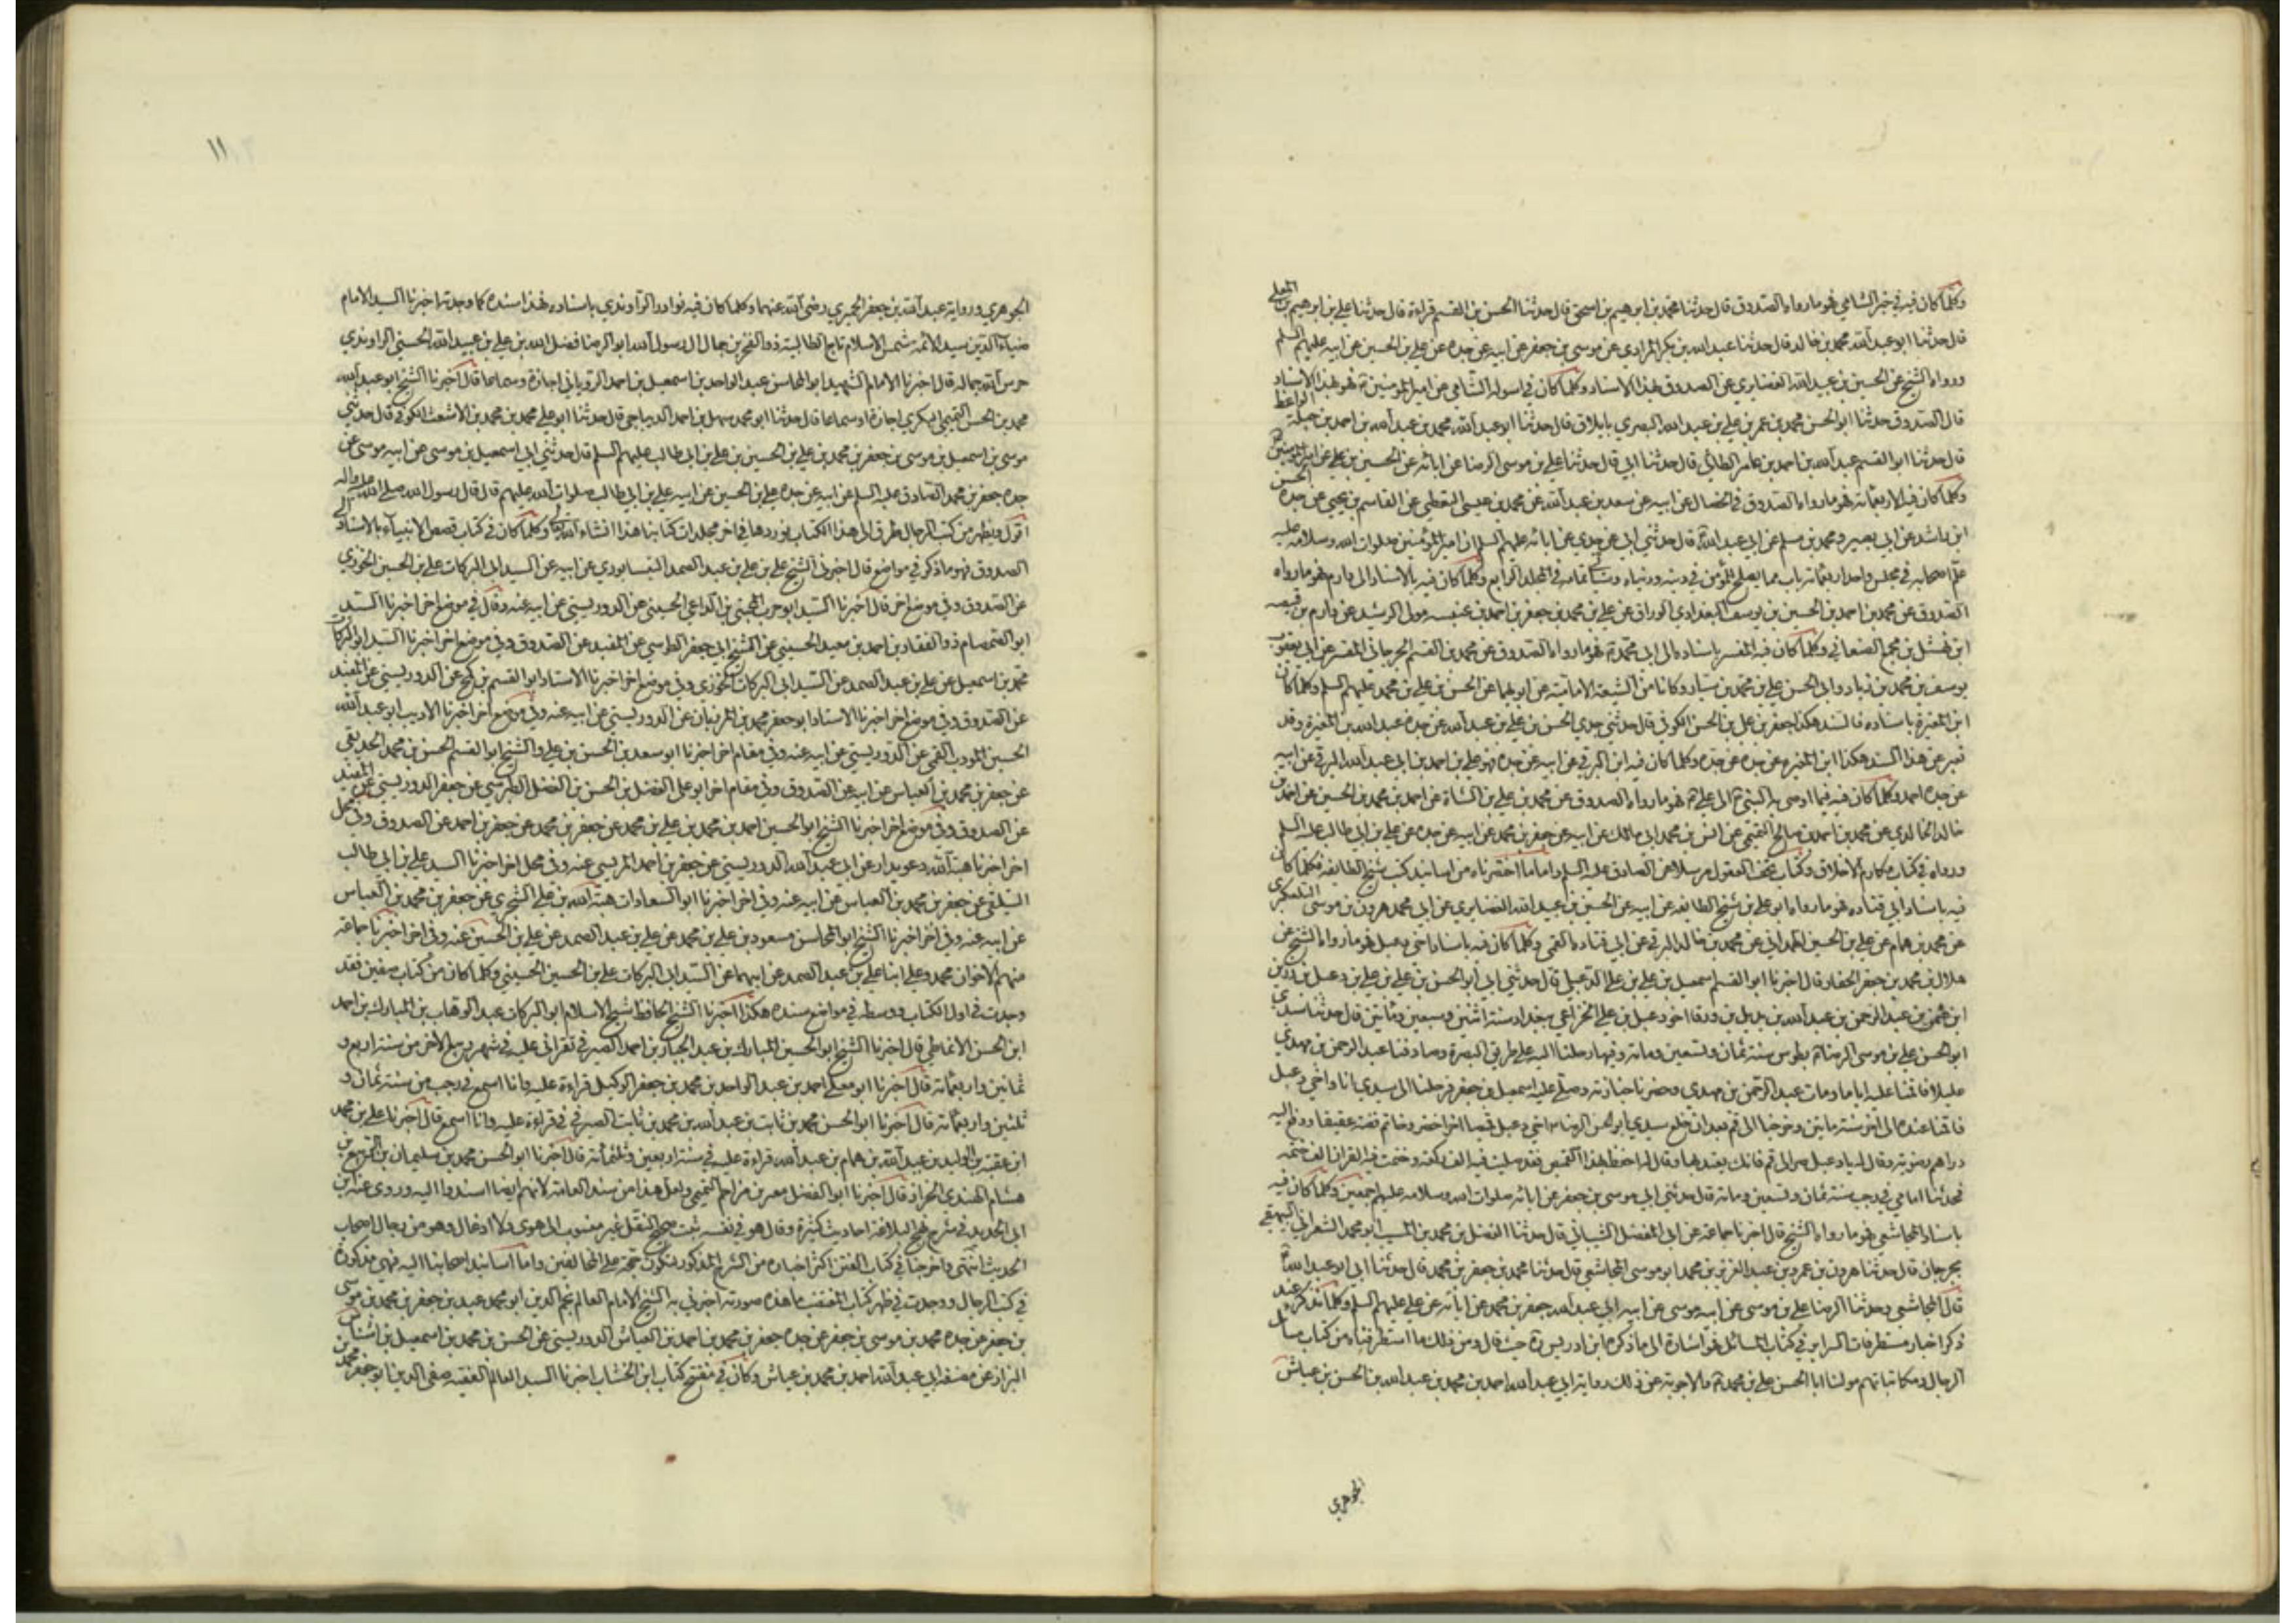 وكلما كان فيه في خبر الشامي فهو ما رواه الصدوق قال حدثنا محمد بن ابرهيم بن اسحق قال حدثنا الحسن بن القسم قراءة قال حدثنا علي بن ابرهيم بن المعلى
قال حدثنا ابو عبد الله محمد بن خالد قال حدثنا عبد الله بن بكر المرادي عن موسى بن جعفر عن ابيه عن جده عن علي بن الحسين عن ابيه عليهم السلم
ورواه الشيخ عن الحسين بن عبيد الله الغضايري عن الصدوق بهذا الاسناد وكلما كان في اسوله الشامي عن امير المؤمنين ع فهو بهذا الاسناد
قال الصدوق حدثنا ابو الحسن محمد بن عمر بن علي بن عبد الله البصري بايلاق قال حدثنا ابو عبد الله محمد بن عبد الله بن احمد بن جبلة الواعظ
قال حدثنا ابو القسم عبد الله بن احمد بن عامر الطائي قال حدثنا ابي قال حدثنا علي بن موسى الرضا عن ابائه عن الحسين بن علي عن امير المؤمنين
وكلما كان فيه الاربعمائة فهو ما رواه الصدوق في الخصال عن ابيه عن سعد بن عبد الله عن محمد بن عيسى اليقطيني عن القاسم بن يحيى عن جده الحسن
ابن راشد عن ابي بصير ومحمد بن مسلم عن ابي عبد الله ع قال حدثني ابي عن جدي عن ابائه عليهم السلم ان امير المؤمنين صلوات الله وسلامه عليه
علم اصحابه في مجلس واحد اربعمائة باب مما يصلح للمؤمن في دينه ودنياه وسياتي تمامه في المجلد الرابع وكلما كان فيه بالاسناد الى دارم فهو ما رواه
الصدوق عن محمد بن احمد بن الحسين بن يوسف البغدادي الوراق عن علي بن محمد بن جعفر بن احمد بن عنبسه مولى الرشيد عن دارم بن قبيصه
ابن نهشل بن مجمع الصنعاني وكلما كان فيه المفسر باسناده الى ابي محمد ع فهو ما رواه الصدوق عن محمد بن القسم الجرجاني المفسر عن ابي يعقوب
يوسف بن محمد بن زياد وابي الحسن علي بن محمد بن سيار وكانا من الشيعة الامامية عن ابويهما عن الحسن بن علي بن محمد عليهم السلم وكلما كان
ابن المغيرة باسناده فالسند هكذا جعفر بن علي بن الحسن الكوفي قال حدثني جدي الحسن بن علي بن عبد الله عن جده عبد الله بن المغيرة وقد
نعبر عن هذا السند هكذا ابن المغيره عن جده عن جده وكلما كان فيه ابن البرقي عن ابيه عن جده فهو علي بن احمد بن ابي عبد الله البرقي عن ابيه
عن جده احمد وكلما كان فيه فيما اوصى به النبي ص الى علي ع فهو ما رواه الصدوق عن محمد بن علي بن الشاه عن احمد بن محمد بن الحسين عن احمد بن
خالد الخالدي عن محمد بن احمد بن صالح التميمي عن انس بن محمد ابي مالك عن ابيه عن جعفر بن محمد عن ابيه عن جده عن علي بن ابي طالب عليه السلم
ورواه في كتاب مكارم الاخلاق وكتاب تحف العقول مرسلا عن الصادق عليه السلم واما ما اختصرناه من اسانيد كتب شيخ الطايفه فكلما كان
فيه باسناد ابي قتاده فهو ما رواه ابو علي بن شيخ الطايفه عن ابيه عن الحسين بن عبيد الله الغضايري عن ابي محمد هرون بن موسى التلعكبري
عن محمد بن همام عن علي بن الحسين الهمداني عن محمد بن خالد البرقي عن ابي قتاده القمي وكلما كان فيه باسناد اخي دعبل فهو ما رواه الشيخ عن
هلال بن محمد بن جعفر الحفار قال اخبرنا ابو القسم اسمعيل بن علي بن علي الدعبلي قال حدثني ابي ابو الحسن بن علي بن علي بن دعبل بن رزين
ابن عثمن بن عبد الرحمن بن عبد الله بن بديل بن ورقا اخو دعبل بن علي الخزاعي ببغداد سنة اثنين وسبعين ومائتين قال حدثنا سيدي
ابو الحسن علي بن موسى الرضا ع بطوس سنة ثمان وتسعين ومائة وفيها رحلنا اليه على طريق البصرة وصادفنا عبد الرحمن بن مهدي
عليلا فاقمنا عليه اياما ومات عبد الرحمن بن مهدي وحضرنا جنازته وصلى عليه اسمعيل بن جعفر فرحلنا الى سيدي انا واخي دعبل
فاقمنا عنده الى اخر سنة مايتين وخرجنا الى قم بعد ان خلع سيدي ابو الحسن الرضا ع على اخي دعبل قميصا اخر اخضر وخاتم فضه عقيقا ودفع اليه
دراهم رضويه وقال له يا دعبل مر الى قم فانك تفيد بها وقال له احفظ بهذا القميص فقد صليت فيه الف ركعه وختمت فيه القران الف ختمه
فحدثنا املا في رجب سنة ثمان وتسعين ومائة قال حدثني ابي موسى بن جعفر عن ابائه صلوات الله وسلامه عليهم اجمعين وكلما كان فيه
باسناد المجاشعي فهو ما رواه الشيخ قال اخبرنا جماعة عن ابي المفضل الشيباني قال حدثنا الفضل بن محمد بن المسيب ابو محمد الشعراني البيهقي
بجرجان قال حدثنا هرون بن عمرو بن عبد العزيز بن محمد ابو موسى المجاشعي قال حدثنا محمد بن جعفر بن محمد قال حدثنا ابي ابو عبد الله ع
قال المجاشعي وحدثنا الرضا علي بن موسى عن ابيه موسى عن ابيه ابي عبد الله جعفر بن محمد عن ابائه عن علي عليهم السلم وكلما نذكر عند
ذكر اخبار مستطرفات السراير في كتاب المسائل فهو اشارة الى ما ذكره ابن ادريس ره حيث قال ومن ذلك ما استطرفناه من كتاب مسائل
الرجال ومكاتباتهم مولنا ابا الحسن علي بن محمد ع والاجوبة عن ذلك رواية ابي عبد الله احمد بن محمد بن عبد الله بن الحسن بن عياش
الجوهري
١١
الجوهري ورواية عبد الله بن جعفر الحميري رضي الله عنهما وكلما كان فيه نوادر الراوندي باسناده فهذا سنده كما وجدته اخبرنا السيد الامام
ضياء الدين سيد الائمه شمس الاسلام تاج الطالبية ذو الفخرين جمال ال رسول الله ابو الرضا فضل الله بن علي بن عبيد الله الحسني الراوندي
حرس الله جماله قال اخبرنا الامام الشهيد ابو المحاسن عبد الواحد بن اسمعيل بن احمد الروياني اجازة وسماعا قال اخبرنا الشيخ ابو عبد الله
محمد بن الحسن التميمي البكري اجازة او سماعا قال حدثنا ابو محمد سهل بن احمد الديباجي قال حدثنا ابو علي محمد بن محمد بن الاشعث الكوفي قال حدثني
موسى بن اسمعيل بن موسى بن جعفر بن محمد بن علي بن الحسين بن علي بن ابي طالب عليهم السلم قال حدثني ابي اسمعيل بن موسى عن ابيه موسى عن
جده جعفر بن محمد الصادق عليه السلم عن ابيه عن جده علي بن الحسين عن ابيه علي بن ابي طالب صلوات الله عليهم قال قال رسول الله صلى الله عليه واله
اقول ويظهر من كتب الرجال طرق الى هذا الكتاب نوردها في اخر مجلدات كتابنا هذا انشاء الله تعالى وكلما كان في كتاب قصص الانبياء بالاسناد الى
الصدوق فهو ما ذكر في مواضع قال اخبرني الشيخ علي بن علي بن عبد الصمد النيسابوري عن ابيه عن السيد ابي البركات علي بن الحسين الخوزي
عن الصدوق وفي موضع اخر قال اخبرنا السيد ابو حرب المجتبى بن الداعي الحسيني عن الدوريستي عن ابيه عنه وقال في موضع اخر اخبرنا السيد
ابو الصمصام ذو الفقار بن احمد بن معبد الحسيني عن الشيخ ابي جعفر الطوسي عن المفيد عن الصدوق وفي موضع اخر اخبرنا السيد ابو البركات
محمد بن اسمعيل عن علي بن عبد الصمد عن السيد ابي البركات الخوزي وفي موضع اخر اخبرنا الاستاد ابو القسم بن كمح عن الدوريستي عن المفيد
عن الصدوق وفي موضع اخر اخبرنا الاستاد ابو جعفر محمد بن المرزبان عن الدوريستي عن ابيه عنه وفي موضع اخر اخبرنا الاديب ابو عبد الله
الحسين المؤدب القمي عن الدوريستي عن ابيه عنه وفي مقام اخر اخبرنا ابو سعد بن الحسن بن علي والشيخ ابو القسم الحسن بن محمد الحديقي
عن جعفر بن محمد بن العباس عن ابيه عن الصدوق وفي مقام اخر ابو علي الفضل بن الحسن بن الفضل الطبرسي عن جعفر الدوريستي عن المفيد
عن الصدوق وفي موضع اخر اخبرنا الشيخ ابو الحسين احمد بن محمد بن علي بن محمد عن جعفر بن محمد عن جعفر بن احمد عن الصدوق وفي محل
اخر اخبرنا هبة الله دعويدار عن ابي عبد الله الدوريستي عن جعفر بن احمد المريسي عنه وفي محل اخر اخبرنا السيد علي بن ابي طالب
السيلقي عن جعفر بن محمد بن العباس عن ابيه عنه وفي اخر اخبرنا ابو السعادات هبة الله بن علي الشجري عن جعفر بن محمد بن العباس
عن ابيه عنه وفي اخر اخبرنا الشيخ ابو المحاسن مسعود بن علي بن محمد عن علي بن عبد الصمد عن علي بن الحسين عنه وفي اخر اخبرنا جماعة
منهم الاخوان محمد وعلي ابنا علي بن عبد الصمد عن ابيهما عن السيد ابي البركات علي بن الحسين الحسيني وكلما كان من كتاب صفين فقد
وجدت في اول الكتاب ووسطه في مواضع سنده هكذا اخبرنا الشيخ الحافظ شيخ الاسلام ابو البركات عبد الوهاب بن المبارك بن احمد
ابن الحسن الانماطي قال اخبرنا الشيخ ابو الحسين المبارك بن عبد الجبار بن احمد الصيرفي بقراتي عليه في شهر ربيع الاخر من سنة اربع و
ثمانين واربعمائة قال اخبرنا ابو يعلى احمد بن عبد الواحد بن محمد بن جعفر الوكيل قراءة عليه وانا اسمع في رجب من سنة ثمان و
ثلثين واربعمائة قال اخبرنا ابو الحسن محمد بن ثابت بن عبد الله بن محمد بن ثابت الصيرفي في قراءة عليه وانا اسمع قال اخبرنا علي بن محمد
ابن عقبة بن الوليد بن عبد الله بن همام بن عبد الله قراءة عليه في سنة اربعين وثلثمائة قال اخبرنا ابو الحسن محمد بن سليمان بن الربيع بن
هشام الهندي الخزاز قال اخبرنا ابو الفضل نصر بن مزاحم التميمي ولعل هذا من سند العامة لانهم ايضا اسندوا اليه وروى عنه ابن
ابي الحديد في شرح نهج البلاغة احاديث كثيرة وقال هو في نفسه ثبت صحيح النقل غير منسوب الى هوى ولا ادغال وهو من رجال اصحاب
الحديث انتهى واخرجنا في كتاب الفتن اكثر اخباره من الشرح المذكور لتكون حجة على المخالفين واما اسانيد اصحابنا اليه فهي مذكورة
في كتب الرجال ووجدت في ظهر كتاب المقتضب ما هذه صورته اخبرني به الشيخ الامام العالم نجم الدين ابو محمد عبد بن جعفر بن محمد بن موسى
بن جعفر عن جده محمد بن موسى بن جعفر عن جده جعفر بن محمد بن احمد بن العباس الدوريستي عن الحسن بن محمد بن اسمعيل بن اشناس
البزاز عن مصنفه ابي عبد الله احمد بن محمد بن عياش وكان في مفتتح كتاب ابن الخشاب اخبرنا السيد العالم الفقيه صفي الدين ابو جعفر محمد بن